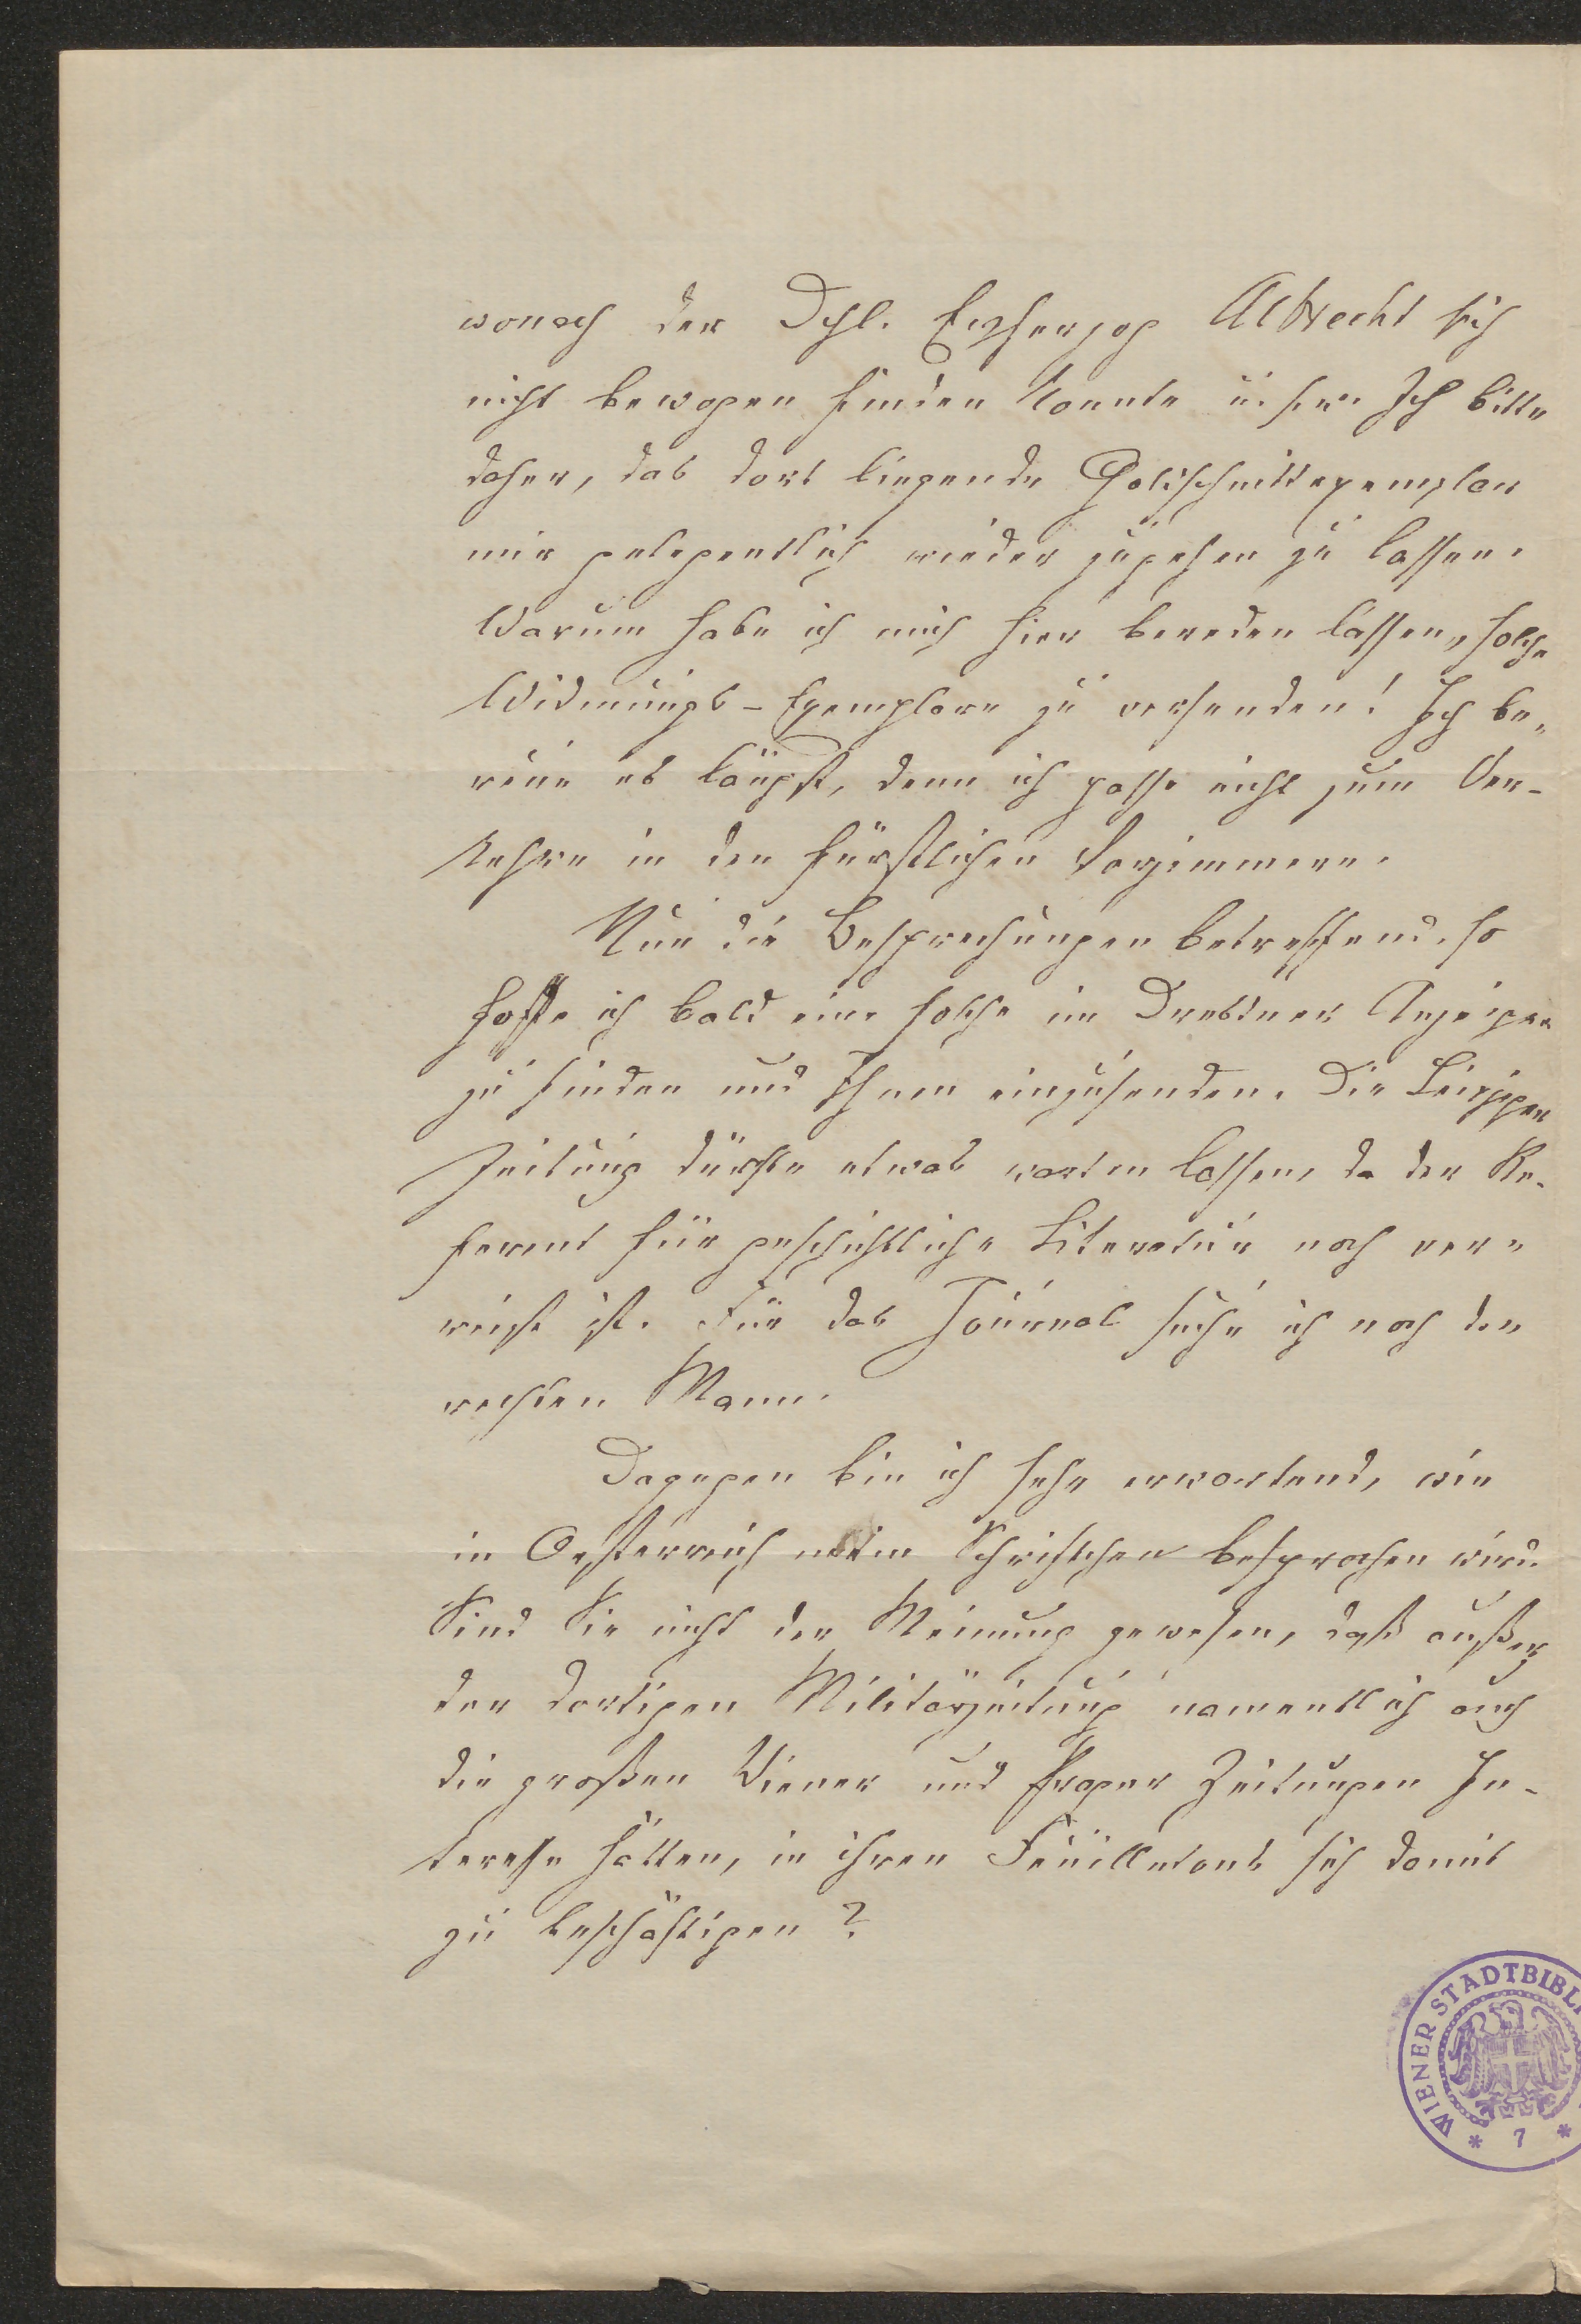 wonach der Dchl. Erzherzog Albrecht sich
nicht bewogen finden konnte u. s. w. Ich bitte
daher, das dort liegende Goldschnittexemplar
mir gelegentlich wieder zugehen zu lassen.
Warum habe ich mich hier bereden lassen, solche
Widmungs-Exemplare zu versenden! Ich be-
reue es längst, denn ich passe nicht zum Ver-
kehre in den fürstlichen Vorzimmern.
Nun die Besprechungen betreffend, so
hoffe ich bald eine solche im Dresdner Anzeiger
zu finden und Ihnen einzusenden. Die Leipziger
Zeitung dürfte etwas warten lassen, da der Re-
ferent für geschichtliche Literatur noch ver-
reist ist. Für das Journal suche ich noch den
rechten Mann.
Dagegen bin ich sehr erwartend, wie
in Oesterreich mein Schriftchen besprochen wird.
Sind Sie nicht der Meinung gewesen, daß außer
der dortigen Militärzeitung namentlich auch
die großen Wiener und Prager Zeitungen In-
teresse hätten, in ihren Feuilletons sich damit
zu beschäftigen?
WIENER STADTBIBLI
* 7 *